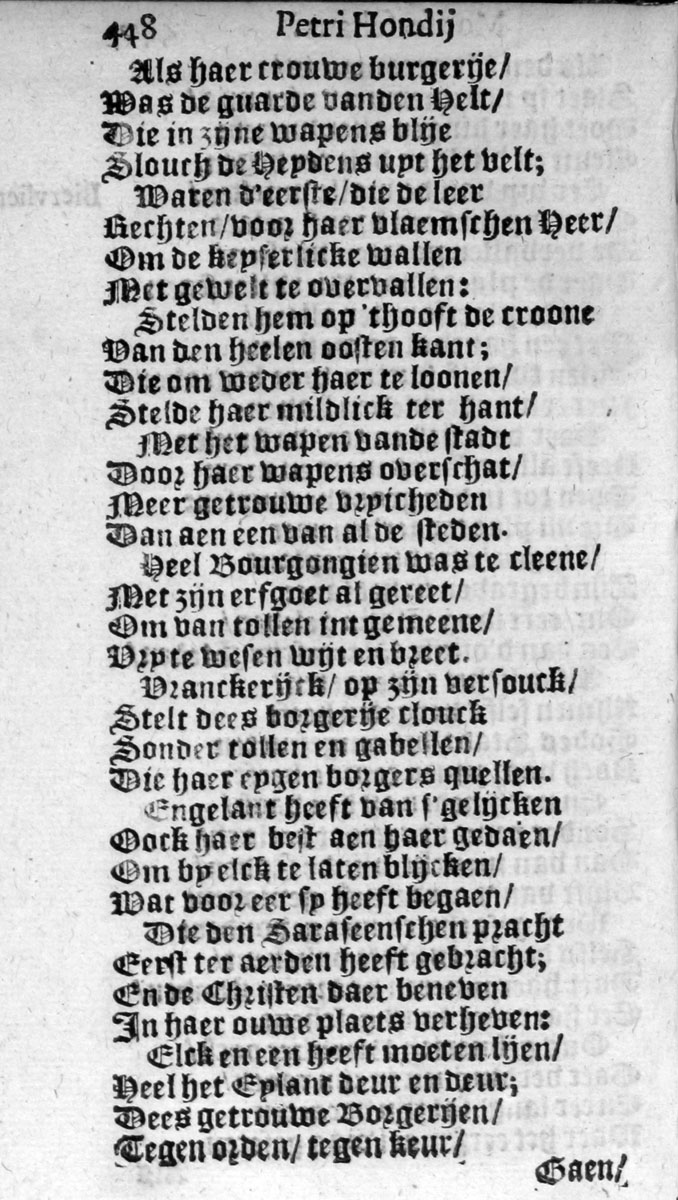 448 Petri Hondij
Als haer trouwe burgerije/
Was de guarde vanden Helt/
Die in zijne wapens blije
Slouch de Heydens uyt het velt;
Waren d'eerste/die de leer
Rechten/voor haer vlaemschen Heer/
Om de keyserlicke wallen
Met gewelt te overvallen:
Stelden hem op 'thooft de croone
Van den heelen oosten kant;
Die om weder haer te loonen/
Stelde haer mildlick ter hant/
Met het wapen vande stadt
Door haer wapens overschat/
Meer getrouwe vryicheden
Dan aen een van al de steden.
Heel Bourgongien was te cleene/
Met zijn erfgoet al gereet/
Om van tollen int gemeene/
Vry te wesen wijt en breet.
Vranckerijck/ op zijn versouck/
Stelt dees borgerije clouck
Sonder tollen en gabellen/
Die haer eygen borgers quellen.
Engelant heeft van s'gelijcken
Oock haer best aen haer gedaen/
Om by elck te laten blijcken/
Wat voor eer sy heeft begaen/
Die den Saraseenschen pracht
Eerst ter aerden heeft gebracht;
En de Christen daer beneven
In haer ouwe plaets verheven:
Elck en een heeft moeten lijen/
Heel het Eylant deur en deur;
Dees getrouwe Borgerijen/
Tegen orden/ tegen keur/
Gaen/